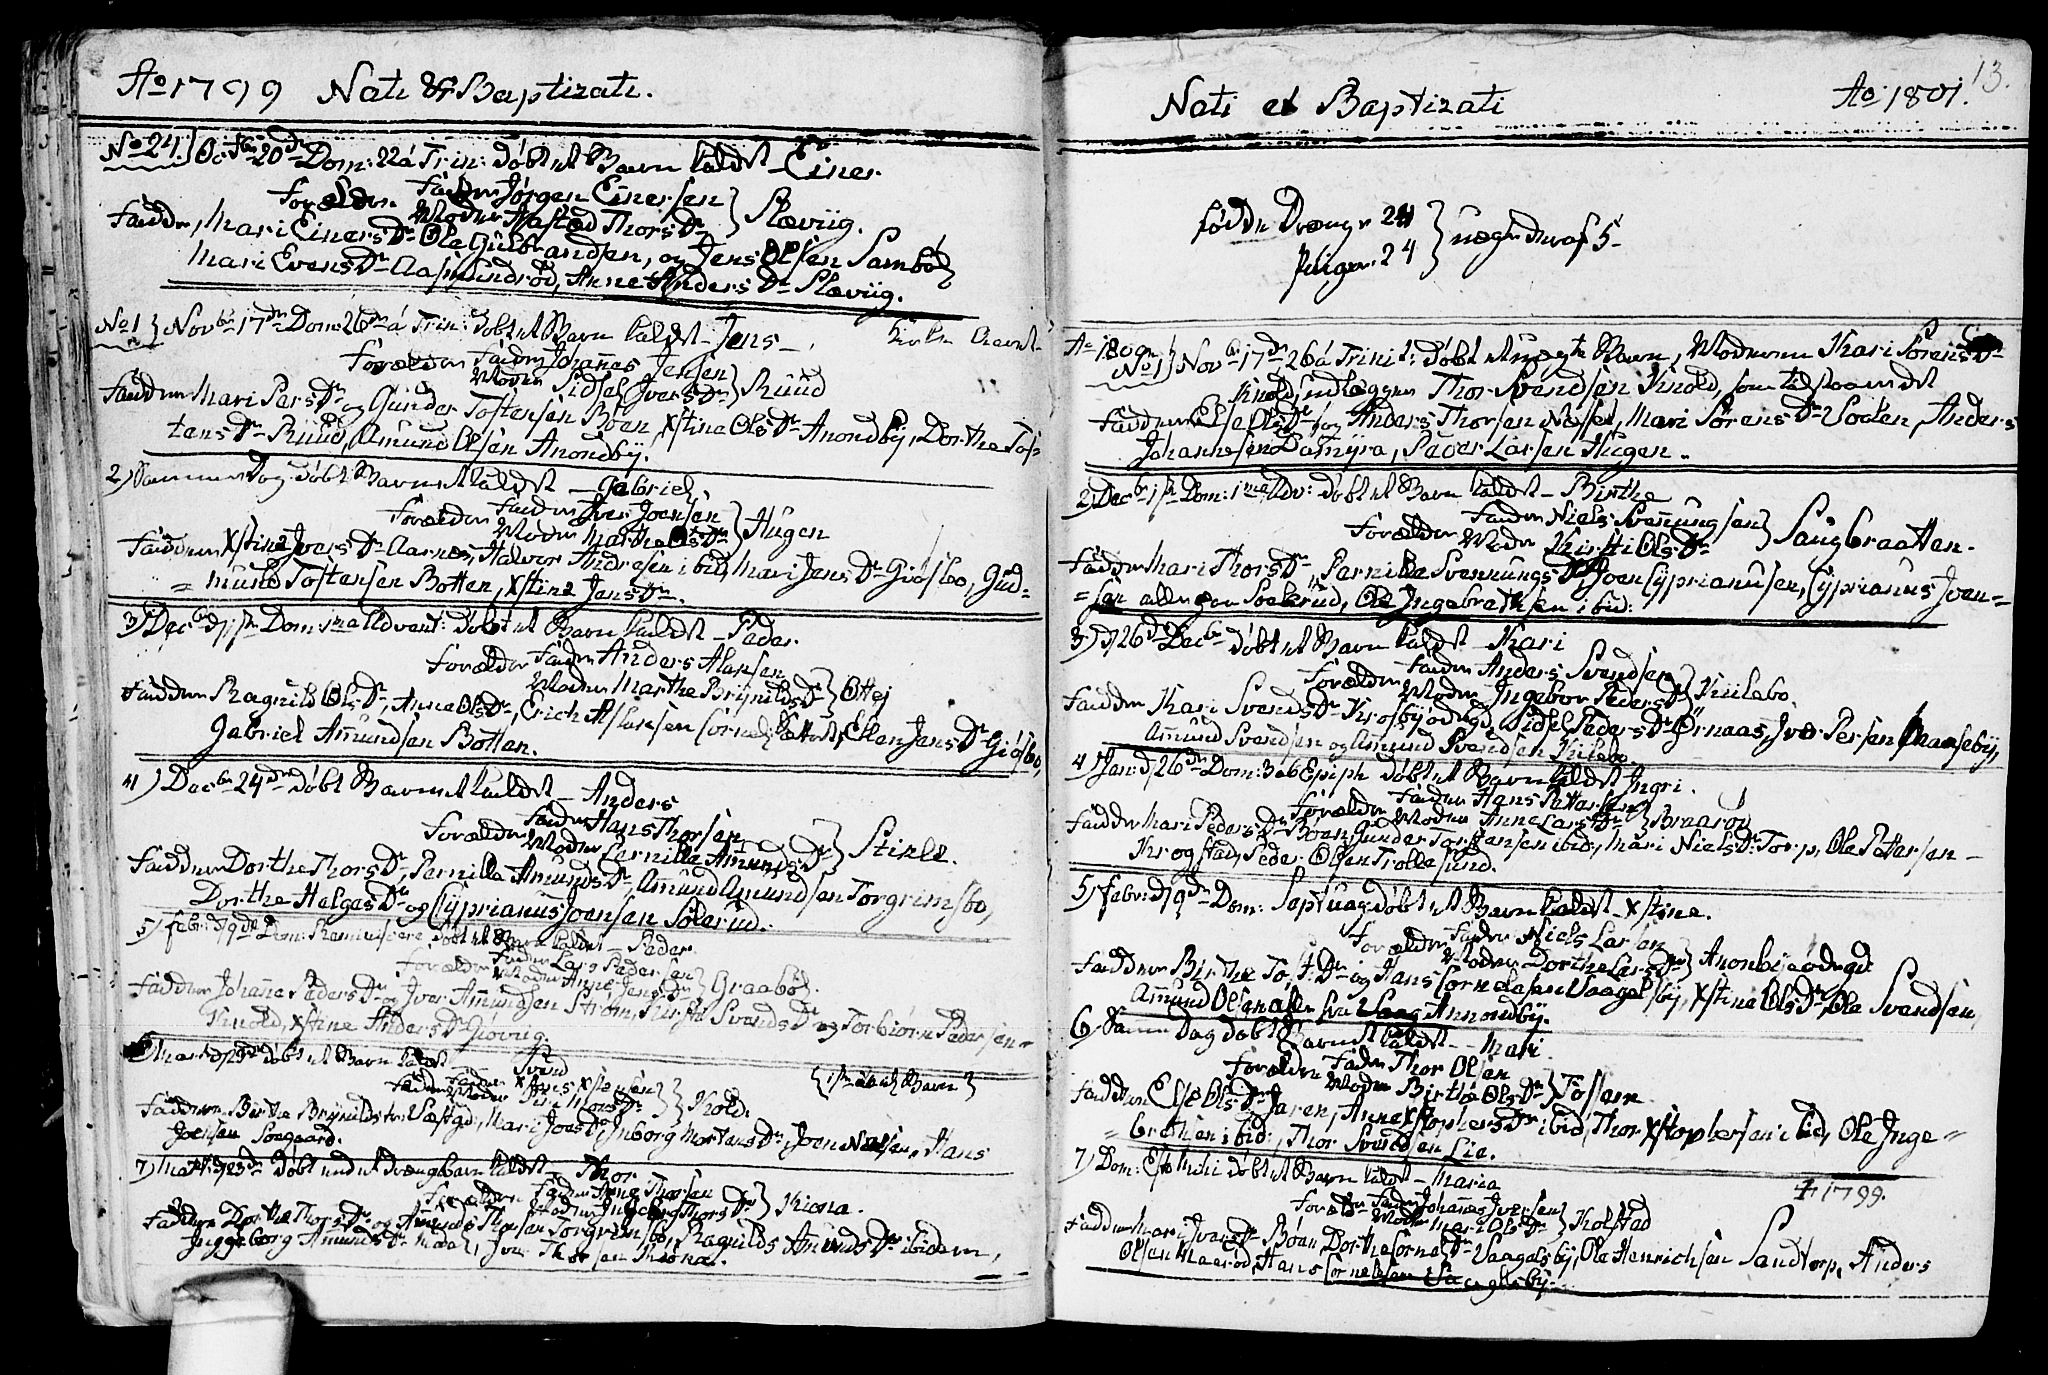 Ao 1799 Nati & Baptizati.
No 24. Octbr 20de Dom: 22 á Trin: döbt et Barn kaldt Einer
Forældre Fader Jørgen Einersen
Moder Aasted Thors Dr } Slæviig.
Faddere, Mari Einers Dr Ole Gulbrandsen, og Jens Olsen Sambøl
Mari Evens Dr Aasmundrød, Anne Anders Dr Slæviig.
No 1 } Novbr 17de Dom: 26 á Trin: döbt et Barn kaldt Jens
Forældre Fader Johannes Jensen
Moder Sidsel Ivers Dr } Ruud
Faddere Mari Pers Dr og Gunder Tostensen Bøen, Xstine Ols Dr Anondby, Dorthe Tos
tens Dr Ruud, Amund Olsen Anondby.
2) Samme Dag döbt Barnet kaldt Gabriel
Forældre Fader Iver Joensen
Moder Marthe Ols Dr } Hugen
Faddere Xstine Ivers Dr Aarnes, Halvor Andresen ibid, Mari Jens Dr Giøsbo, Gud=
=mund Tostensen Botten, Xstine Jens Dr.
3) Decbr d/1ste Dom: 1ma Advent: döbt et Barn kaldt Peder.
Forældre Fader Anders Alansen
Moder Marthe Brynilds Dr } Ottej
Faddere Ragnild Ols Dr, Anne Ols Dr, Erich Aslaksen, Ellen Jens Dr Giøsbo,
Gabriel Amundsen Botten.
4) Decbr 24de döbt Barnet kaldt Anders
Forældre Fader Hans Thorsen
Moder Pernille Amunds Dr } Stinle.
Faddere Dorthe Thors Dr, Pernille Amunds Dr, Amund Amundsen Torgrimsbo,
Dorthe Helges Dr og Cyprianus Joensen Solerud.
5) Febr: d/9de Dom: Reminiscere döbt et Barn kaldt Peder.
Forældre Fader Lars Pedersen
Moder Anne Jens Dr } Graabøl.
Faddere Johanne Peders Dr og Iver Amundsen Strøm, Kirsti Svends Dr og Torbiørn Pedersen
Knold, Xstine Anders Dr Giøvig.
döbt et Barn kaldt Svend
Fader Hans Xstensen
Moder } Kold. {1ste Barn}
Faddere Birthe Brynilds Dr, Mari Joes Dr, Inborg Mortens Dr, Joen Nielsen, Hans
Joensen Soegaard.
7) döbt et Drengebarn kaldt Thor
Forældre Fader Arne Thorsen
Moder Ingeborg Thors Dr } Kiona.
Faddere Dorthe Thors Dr og Amund Thorsen Torgrimsbo, Ragnilds Amunds Dr ibidem,
Ingeborg Amunds Dr, Iver Thorsen Kiona.
Nati et Baptizati Ao 1801. 13.
fødde Drenge 24
Piger 24 } uægte deraf 5
Ao 1800
No 1) Novbr 17de 26 á Trinit: döbt et uægte Barn, Moderen Kari Sørens Dr
Knold, udlægger Thor Svendsen Knold, som tilstaar det
Faddere Else Ols Dr og Anders Thorsen Næset, Mari Sørens Dr Voden, Anders
Johannesen Damyra, Peder Larsen Hugen.
2) Decbr 1ste Dom: 1ma Adv: döbt et Barn kaldt Birthe
Forældre Fader Niels Svennungsen
Moder Kirsti Ols Dr } Saugbraatten.
Faddere Mari Thors Dr, Parnille Svennungs Dr, Joen Cyprianusen, Cyprianus Joen=
=sen alle paa Soelerud, Ole Ingebrethsen ibid:
3) d/26de Decbr döbt et Barn kaldt Kari
Forældre Fader Anders Svendsen
Moder Ingebor Peders Dr } Kiilebo.
Faddere Kari Svends Dr Krosby ødegd, Sidsel Peders Dr Ørnaas, Iver Persen Haneby,
Amund Svendsen og Amund Svendsen Kiilebo.
4) Jan: d/26de Dom: 3 ab Epiph döbt et Barn kaldt Ingri.
Forældre Fader Hans Pettersen
Moder Anne Lars Dr } Braarød
Faddere Mari Peders Dr Bøen Gunder Torstensen ibid, Mari Niels Dr Torp, Ole Pettersen
Krogstad, Peder Olsen Trollesund.
5) Febr: d/9de Dom: Septuag döbt et Barn kaldt Xstine.
Forældre Fader Niels Larsen
Moder Dorthe Lars Dr } Anonby ødegd
Faddere Birthe Tost Dr og Hans Cornelesen Vaagelsby, Xstine Ols Dr, Ole Svendsen,
Amund Olsen alle fra Annondby.
6) Samme Dag döbt Barnet kaldt Mari.
Forældre Fader Thor Olsen
Moder Birthe Ols Dr } Fossem
Faddere Else Ols Dr Jaren, Anne Xstophers Dr ibid, Thor Xstophersen ibid, Ole Inge=
=brethsen ibid:, Thor Svendsen Lie.
7) Dom: Esto Mihi döbt et Barn kaldt Maria
+ 1799.
Forældre Fader Johannes Iversen
Moder Mari Ols Dr } Kolstad
Faddere Mari Ivars Dr Bøen, Dorthe Cornel Dr Vaagelsby, Ole Henrichsen Sandtorp, Anders
Olsen Haarød, Hans Cornelesen Vaagelsby.